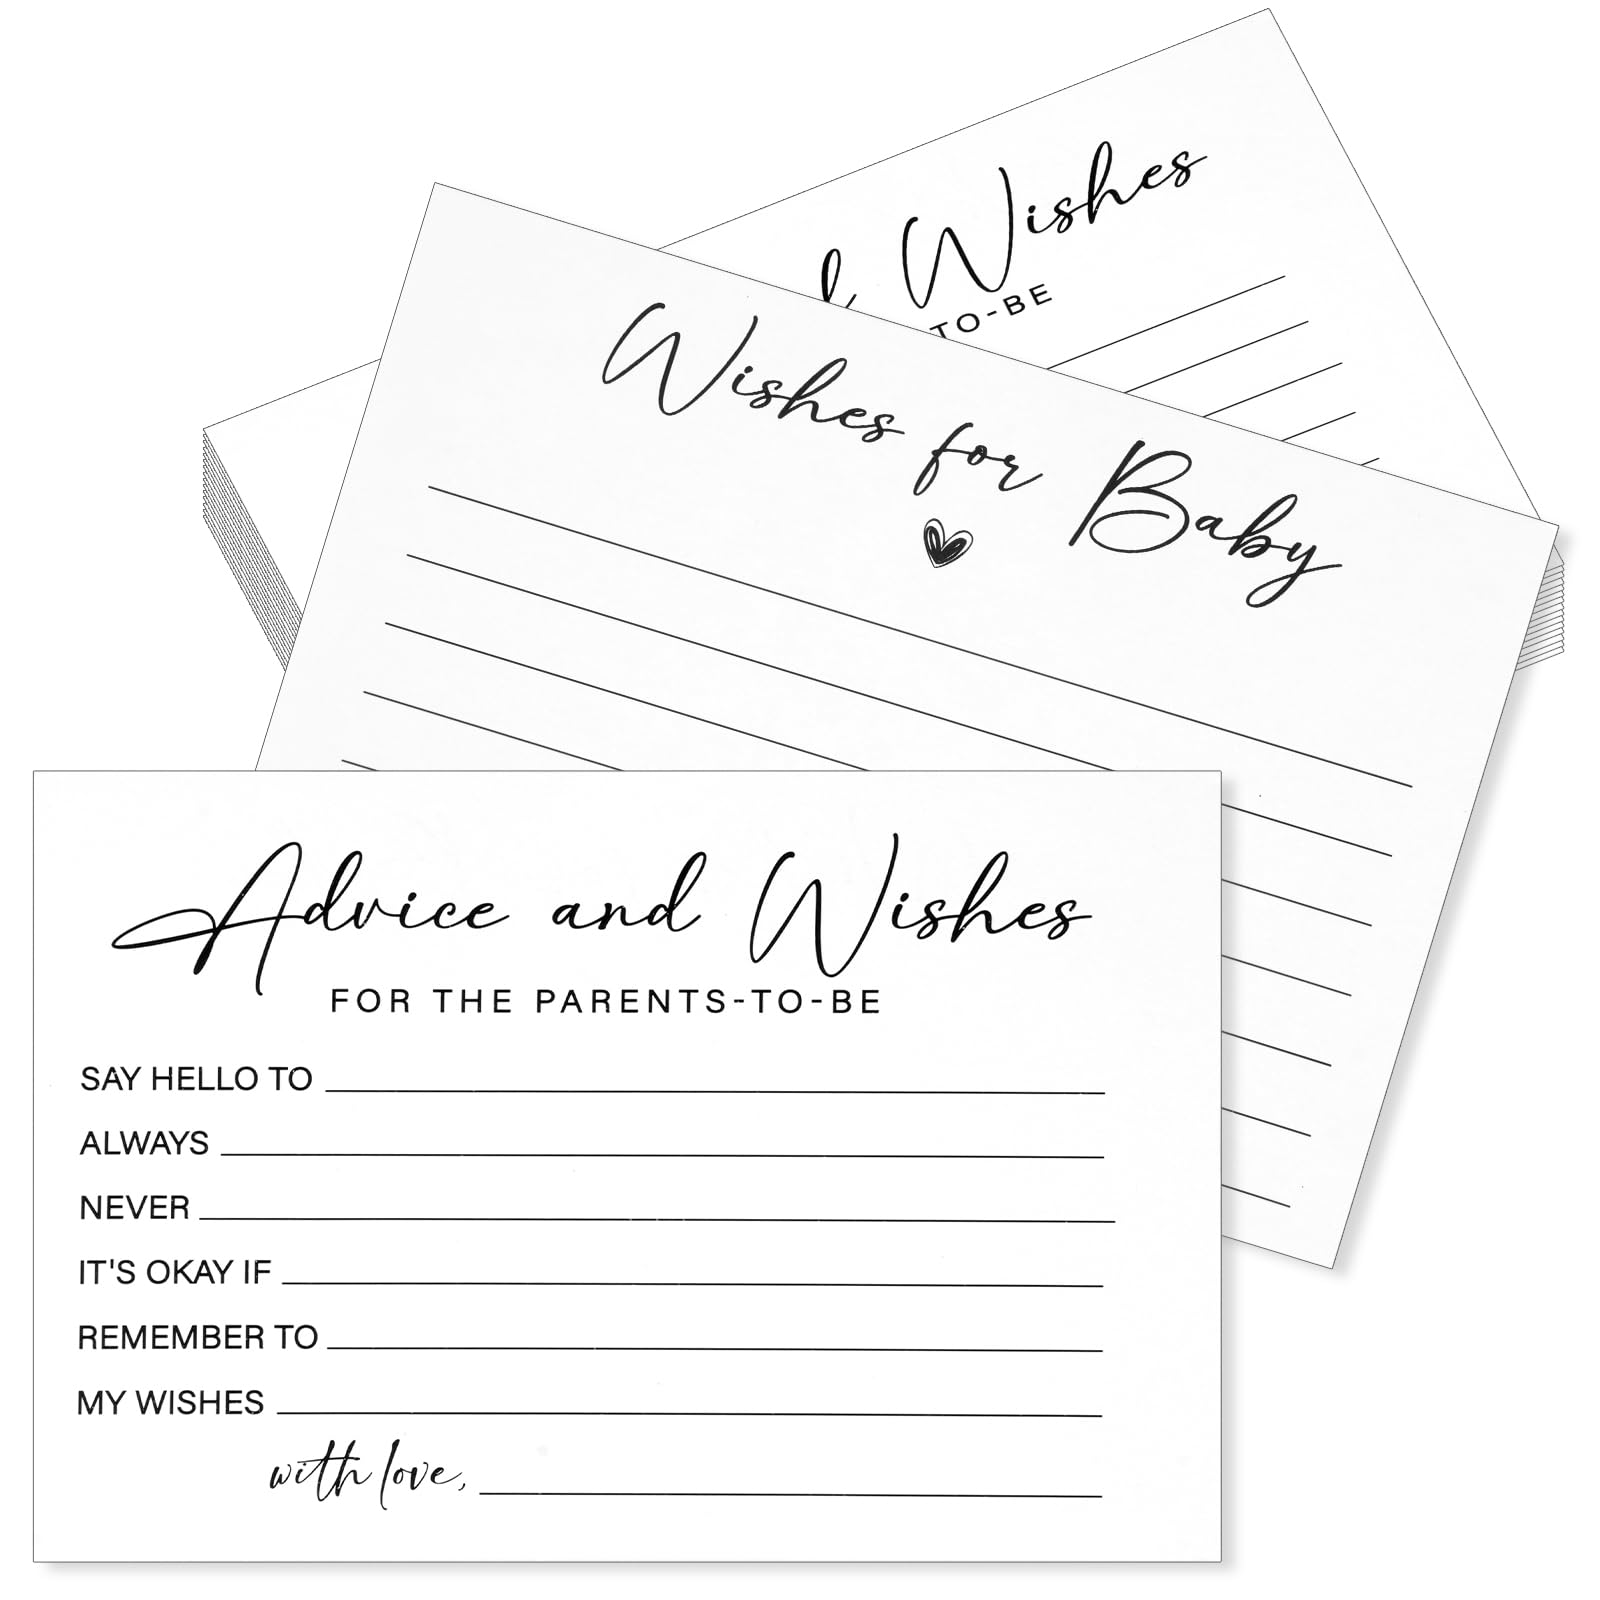 Wishes
TO-BE
Wishes for Baby
Advice and Wishes
FOR THE PARENTS-TO-BE
SAY HELLO TO
ALWAYS
NEVER
IT'S OKAY IF
REMEMBER TO
MY WISHES
with love,